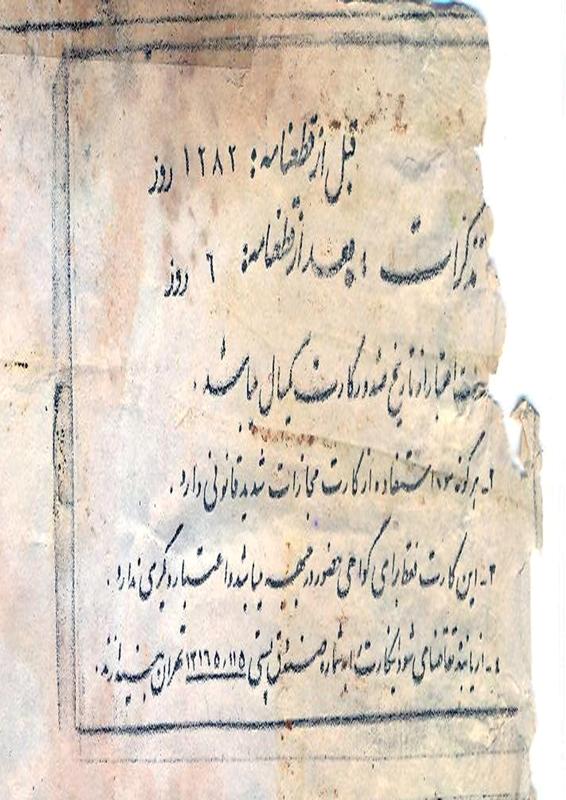 قبل از قطعنامه: ۱۲۸۲ روز
تذکرات : بعد از قطعنامه: ۶ روز
اعتبار از تاریخ صدور کارت یکسال میباشد.
۲- هرگونه سوء استفاده از کارت مجازات شدید قانونی دارد.
۳- این کارت فقط برای گواهی حضور در جبهه میباشد و اعتبار دیگری ندارد.
۴- از یابنده تقاضا می شود اینکارت را به شماره صندوق پستی ۱۳۱۶۵٫۱۱۵ تهران بیندازند.